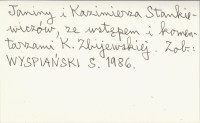 Janiny i Kazimierza Stankie-
wiczów, ze wstępem i komen-
tarzami K. Zbijewskiej. Zob.:
WYSPIAŃSKI S. 1986.